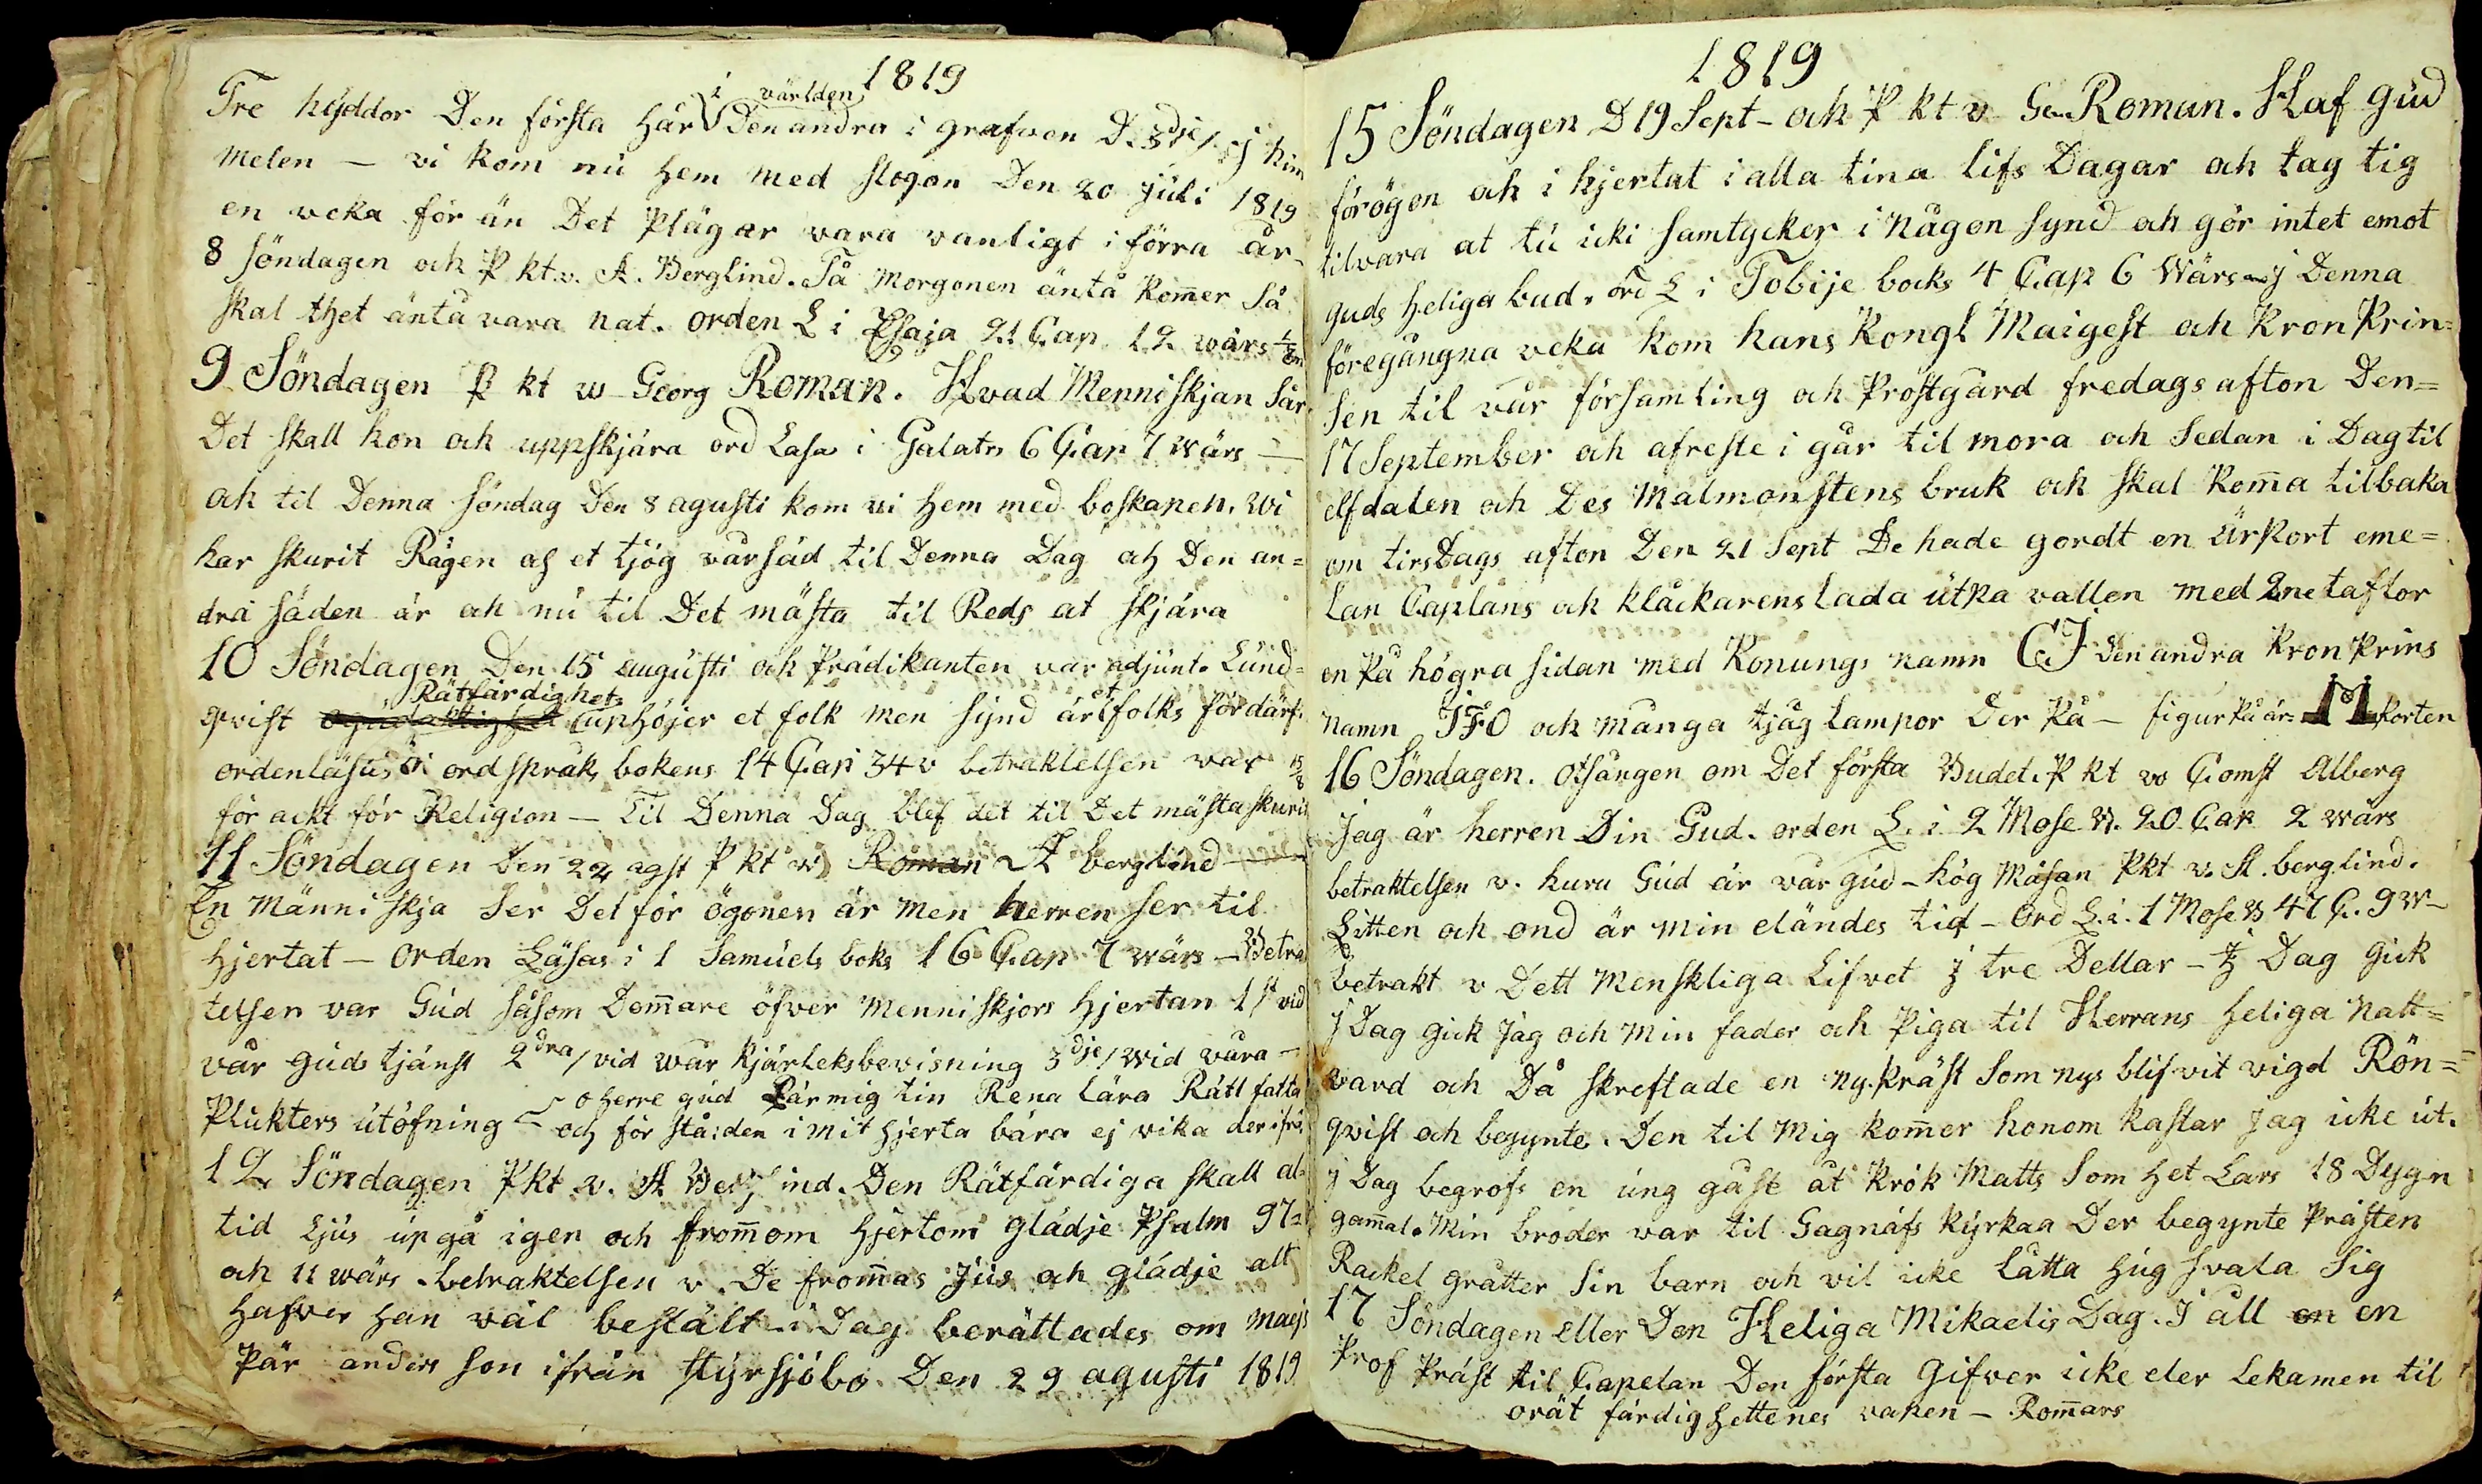 1819
Tre hyddor Den första här i världen Den andra i grafven D. 3dje/ ij him
melen – vi kom nu hem med slogon Den 20 Juli 1819
en veka för än Det Plägar vara vanligt i förra år
8 Söndagen och P kt v. A. Berglind. Tå morgonen äntå kom̄er Så
skal thet äntå vara nat. orden L i Esaja 21 Cap 12 wärs
9 Söndagen P kt w Georg Roman. Hvad Menniskjan Sår
Det skall hon och uppskjära ord Läsa i Galatr 6 Cap 7 wärs –
och til Denna Söndag Den 8 agusti kom vi hem med boskapen. wi
har skurit Rågen af et tjög vårsäd til Denna Dag och Den an=
dra säden är och nu til Det mästa til Reds at skjära
10 Söndagen Den 15 augusti och Prädikanten var adjunt. Lund=
qvist Rätfärdighet uphöjer et folk men synd är et folks fördärf.
orden läsas i ordspråks bokens 14 Cap 34 v betraktelsen var 15/8
för ackt för Religion – Til Denna Dag blef det til Det mästa skurit
11 Söndagen Den 22 agst P kt w Roman A berglind
En Människja Ser Det för ögonen är men herren ser til
hjertat – orden Läsas i 1 Samuels boks 16 Cap 7 wärs – Betra
telsen var Gud såsom Dom̄are öfver Menniskjors hjertan 1st vid
vår guds tjänst 2dra/ vid wår kjärleksbevisning 3dje/ wid våra –
o herre gud Lär mig tin Rena lära Rätt fatta
Plikters utöfning – och för stå:den i mit hjerta bära ej vika der ifrå
12 Söndagen Pkt v. A Berglind. Den Rätfärdiga skall al=
tid Ljus up gå igen och from̄om hjertom glädje Psalm 97=
och 11 wärs. betraktelsen v. De from̄as jus och glädje alt
hafver han väl bestält – i Dag berättades om maejs
Pär anders son ifrån styrsjöbo Den 29 agusti 1819
1819
15 Söndagen D 19 Sept – och P kt v Ge. Roman. Haf gud
förögon och i hjertat i alla tina lifs Dagar och tag tig
tilvara at tu icki Samtycker i Någon synd och gör intet emot
guds heliga bud. ord L i Tobije boks 4 Cap 6 Wärs – j Denna
föregångna veka kom hans Kongl Maigest och kron Prin=
sen til vår församling och Prostgård fredags afton Den=
17 September och afreste i går til mora och Sedan i Dag til
elfdalen och Des Malmonstens bruk och skal Kom̄a tilbaka
om tirsdags afton Den 21 Sept De hade gordt en ärPort eme=
lan Caplans och kläckarens Lada utpa vallen med 2 ne taflor
en på högra sidan med Konungs namn CJ den andra kron Prins
Namn JFO och många tjug Lampor der på – figur på är M Porten
16 Söndagen. otsången om Det första Budet. P kt w Comst Alberg
Jag är herren Din Gud. orden L. i 2 Mose B. 20 Cap 2 wärs
betraktelsen v. huru Gud är vår gud – hög Mäsan Pkt v. A. berglind.
Litten och ond är min eländes tid – ord L. i. 1 Mose B 47 C. 9 w –
betrakt v Dett Menskliga Lifvet j tre Dellar – j Dag gick
j Dag gick Jag och Min fader och Piga til Herrans heliga natt=
vard och Då skreftade en ny. Präst Som nys blifvit vigd Rön=
qvist och begynte. Den til Mig kom̄er honom kastar jag icke ut.
j Dag begrofs en ung gåse åt Krok Matts Som het Lars 18 Dygn
gam̄al. Min broder var til Gagnäfs Kyrkaa Der begynte Prästen
Rackel gråtter Sin barn och vil icke Lätta hug svala Sig
17 Söndagen eller Den Heliga Mikaelis Dag. J åll en en
Prof Präst til Capelan Den första Gifver icke eder Lekamen til
orät färdig hettenes vapen – Rom̄ars